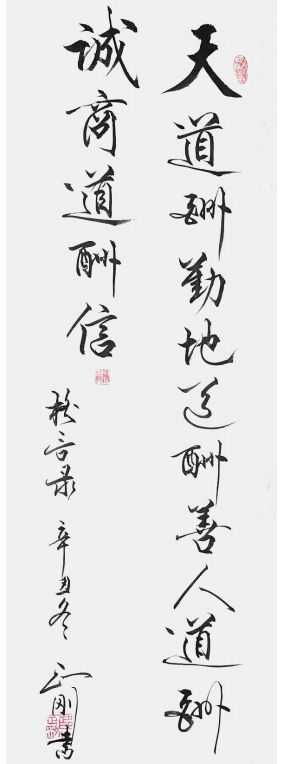 天道酬勤地道酬善人道酬
诚商道酬信
辛丑冬
刚书